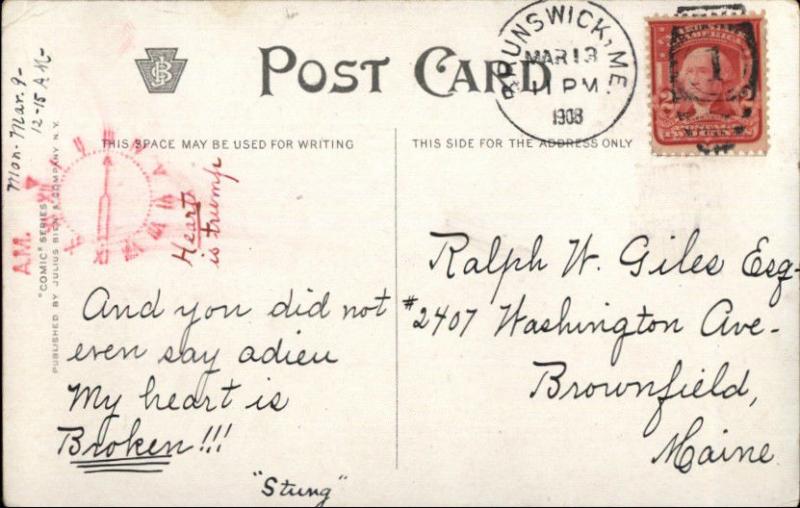 Mon. Mar. 9-
12-15 AM-
"COMIC" SERIES
PUBLISHED BY JULIUS BIEN & COMPANY N.Y.
POST CARD
THIS SPACE MAY BE USED FOR WRITING
THIS SIDE FOR THE ADDRESS ONLY
BRUNSWICK, ME.
MAR 13
11 PM
1908
1
A.M.
Heart
is trump
And you did not
even say adieu
My heart is
Broken!!!
"Stung"
Ralph W. Giles Esq-
#2407 Washington Ave-
Brownfield,
Maine